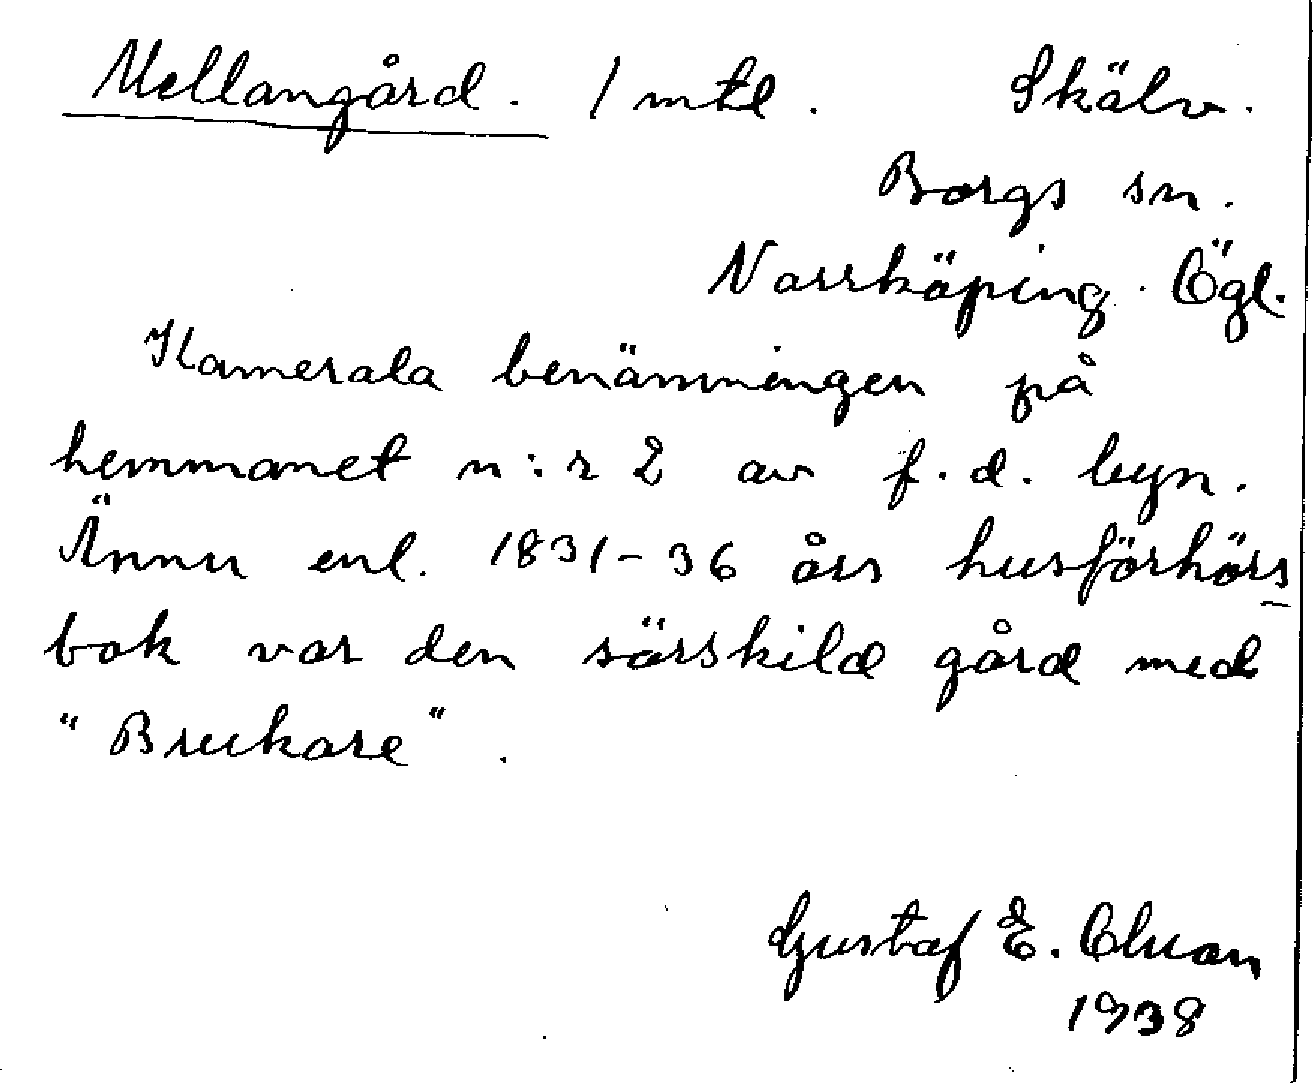 Mellangård. 1 mtl. Skälv.
Borgs sn.
Norrköping. Ögl.
Kamerala benämningen på
hemmanet n:r 2 av f.d. byn.
Ännu enl. 1831-36 års husförhörs
bok var den särskild gård med
"Brukare".
Gustaf E.
1938